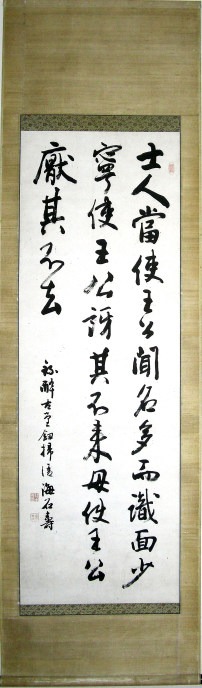 士人當使王公聞名多而識面少
寧使王公訝其不来毋使王公
厭其不去
錄醉古堂劍掃語 海石壽